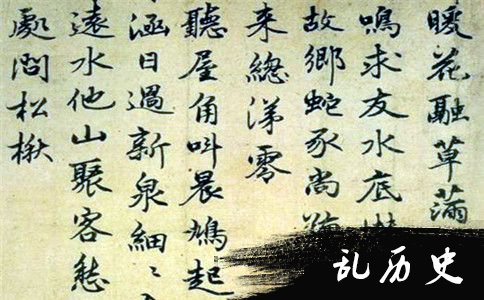 暖花融草
鳴求友水底
故鄉蛇豕尚
来總涕零
聽屋角叫晨鳩起
涵日過新泉細〻
遠水他山聚客愁
處問松楸
乱历史